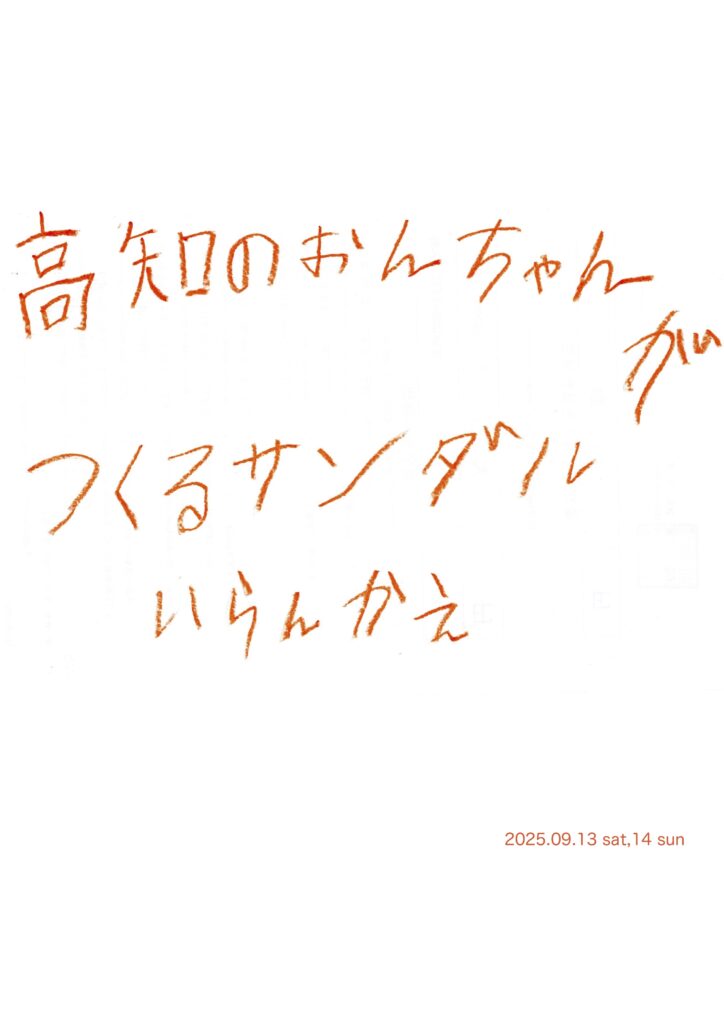 高知のおんちゃん
が
つくるサンダル
いらんかえ
2025.09.13 sat,14 sun